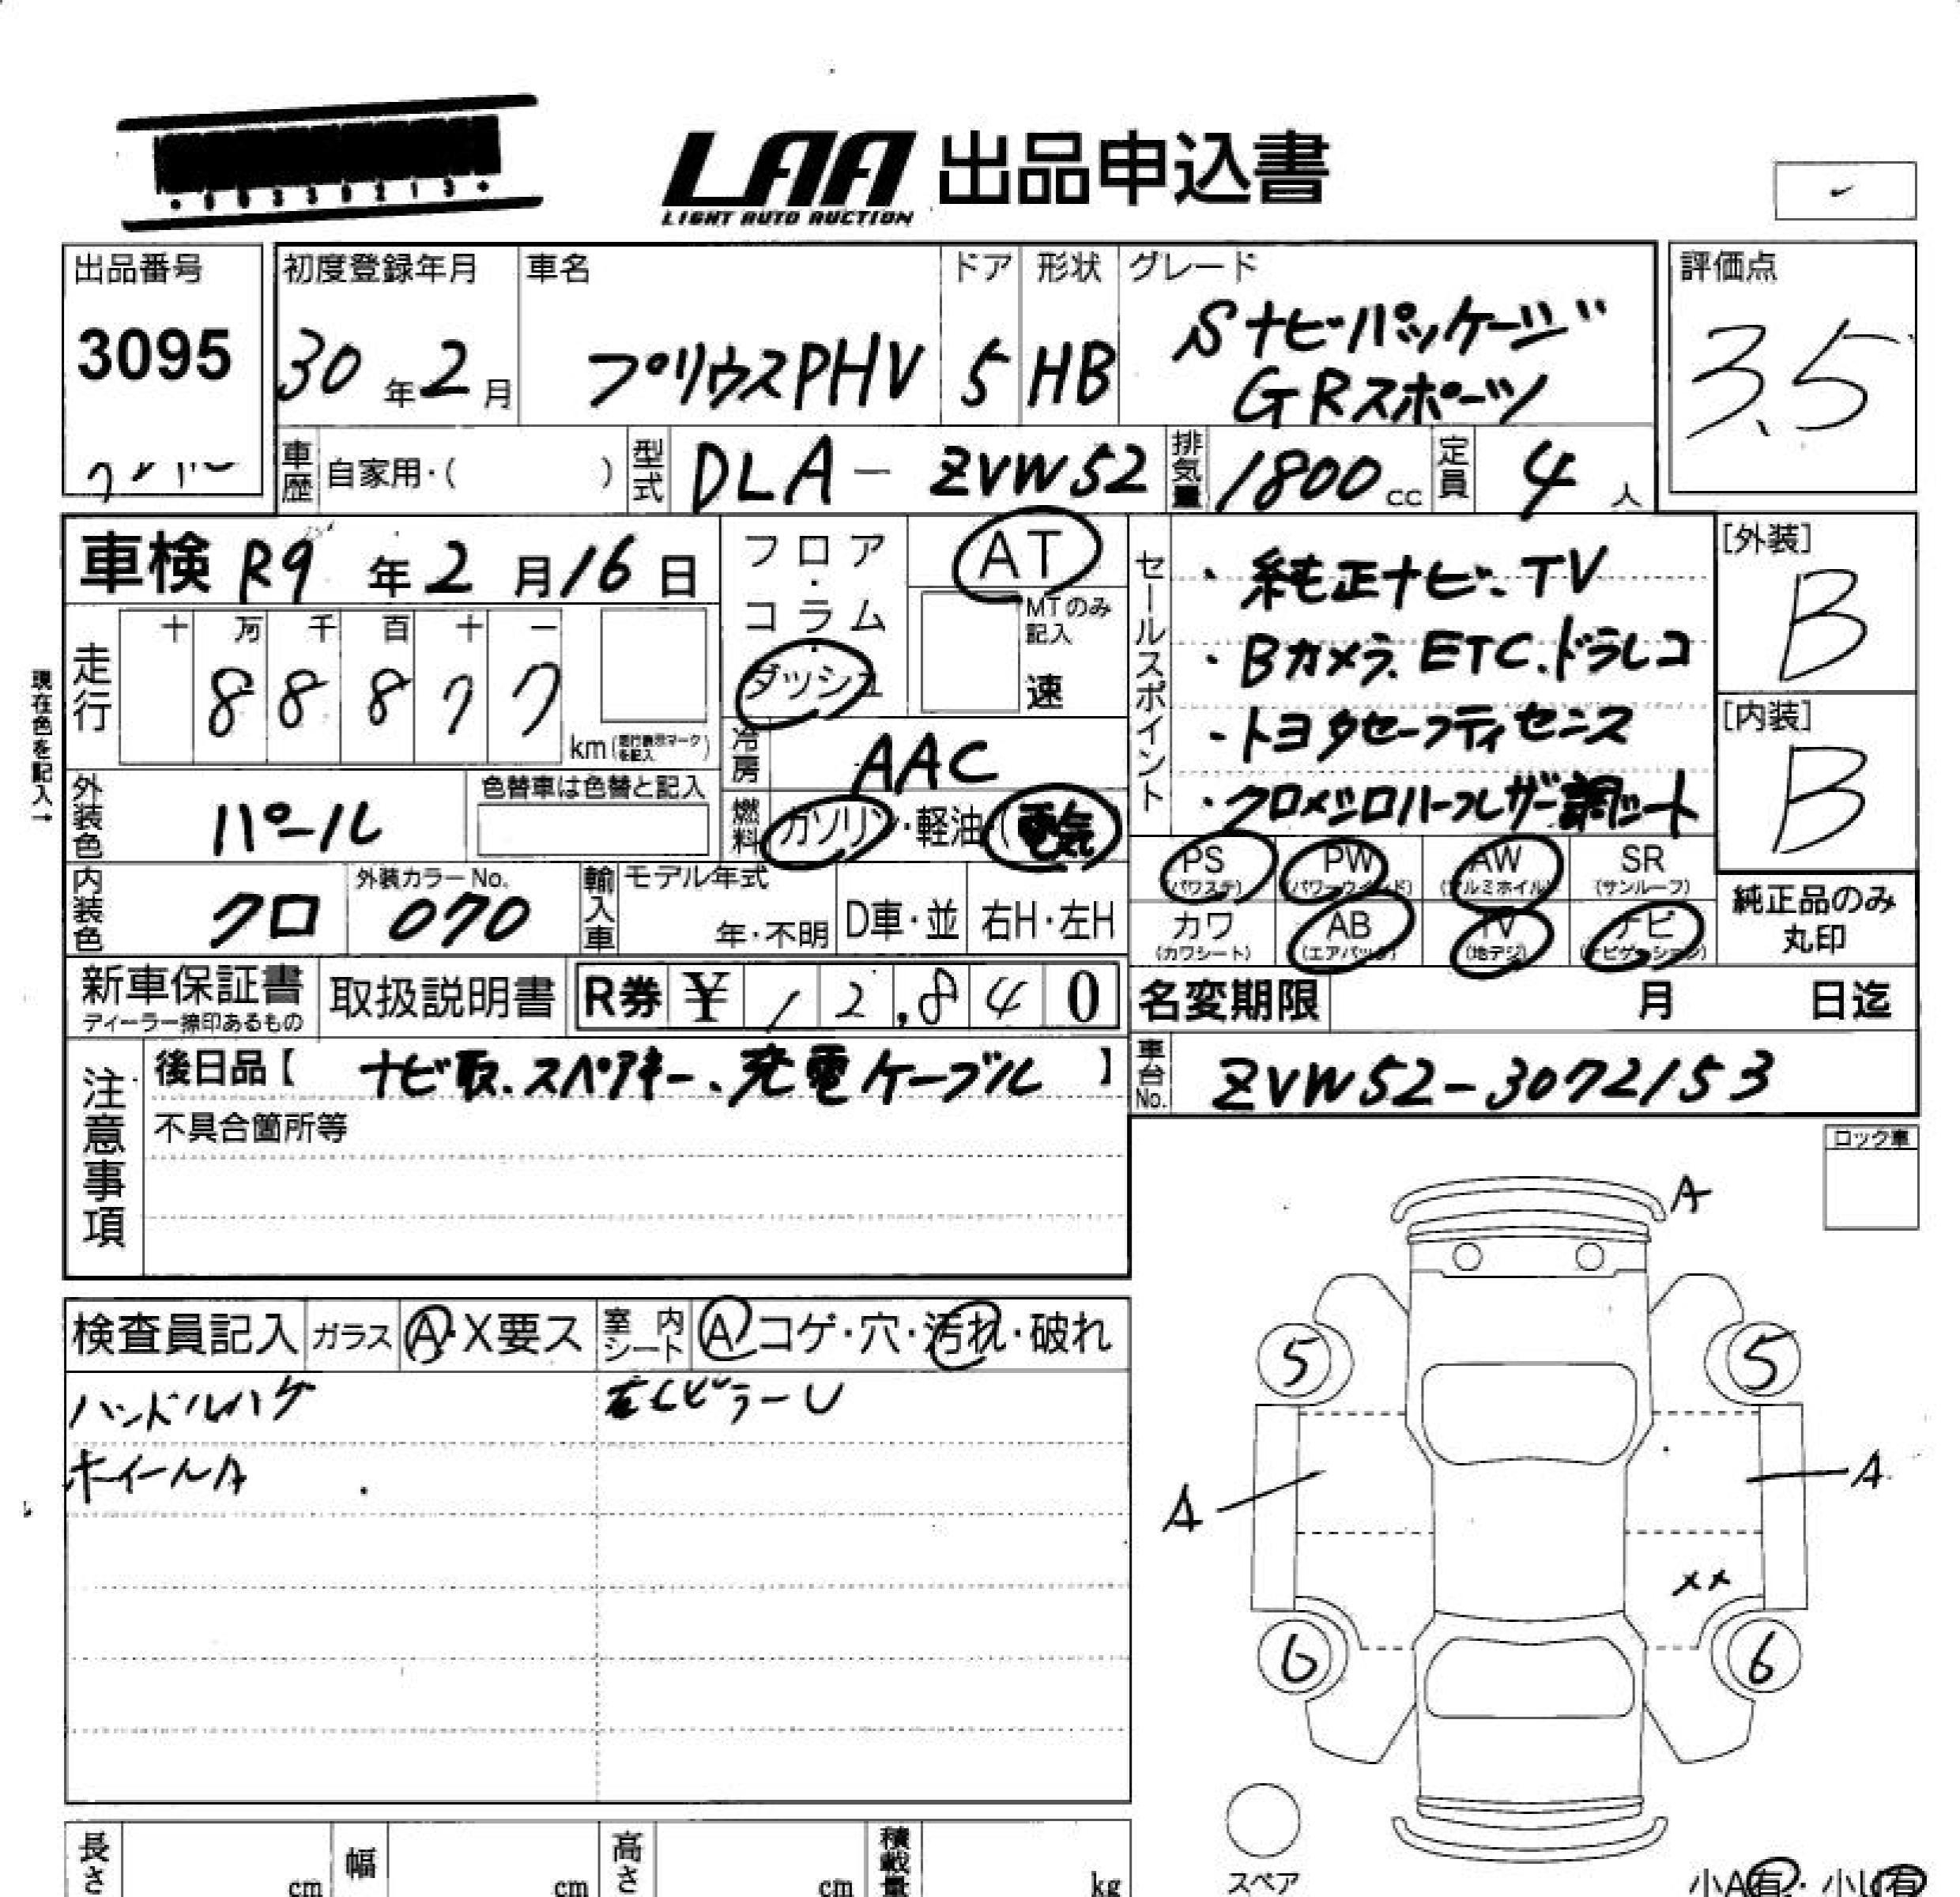 LAA 出品申込書
LIGHT AUTO AUCTION
出品番号
3095
初度登録年月
30年2月
車名
プリウスPHV
ドア
5
形状
HB
グレード
Sナビパッケージ
GRスポーツ
評価点
3.5
車歴 自家用・( )
型式 DLA-ZVW52
排気量 1800cc
定員 4人
車検 R9年2月16日
フロア・コラム・ダッシュ
AT
MTのみ記入
速
セールスポイント
・純正ナビ、TV
・Bカメラ、ETC、ドラレコ
・トヨタセーフティセンス
・クロメシロハーフレザー調シート
[外装]
B
[内装]
B
現在色を記入→
走行
十 万 千 百 十 一
8 8 8 7 7
km(走行表示マークを記入)
冷房 AAC
燃料 ガソリン・軽油(電気)
外装色 パール
色替車は色替と記入
内装色 クロ
外装カラーNo.
070
輸入車
モデル年式
年・不明
D車・並
右H・左H
PS (パワステ)
PW (パワーウインド)
AW (アルミホイル)
SR (サンルーフ)
カワ (カワシート)
AB (エアバック)
TV (地デジ)
ナビ (ナビゲーション)
純正品のみ
丸印
新車保証書
ディーラー捺印あるもの
取扱説明書
R券 ¥12,840
名変期限 月 日迄
注意事項
後日品【ナビ取、スペアキー、充電ケーブル】
不具合箇所等
車台No. ZVW52-3072153
ロック車
検査員記入
ガラス A・X要ス
室内シート A コゲ・穴・汚れ・破れ
ハンドルハゲ
右CピラーU
ホイールA
A
5 5
A A
XX
6 6
スペア
小A有・小U有
長さ cm
幅 cm
高さ cm
積載量 kg